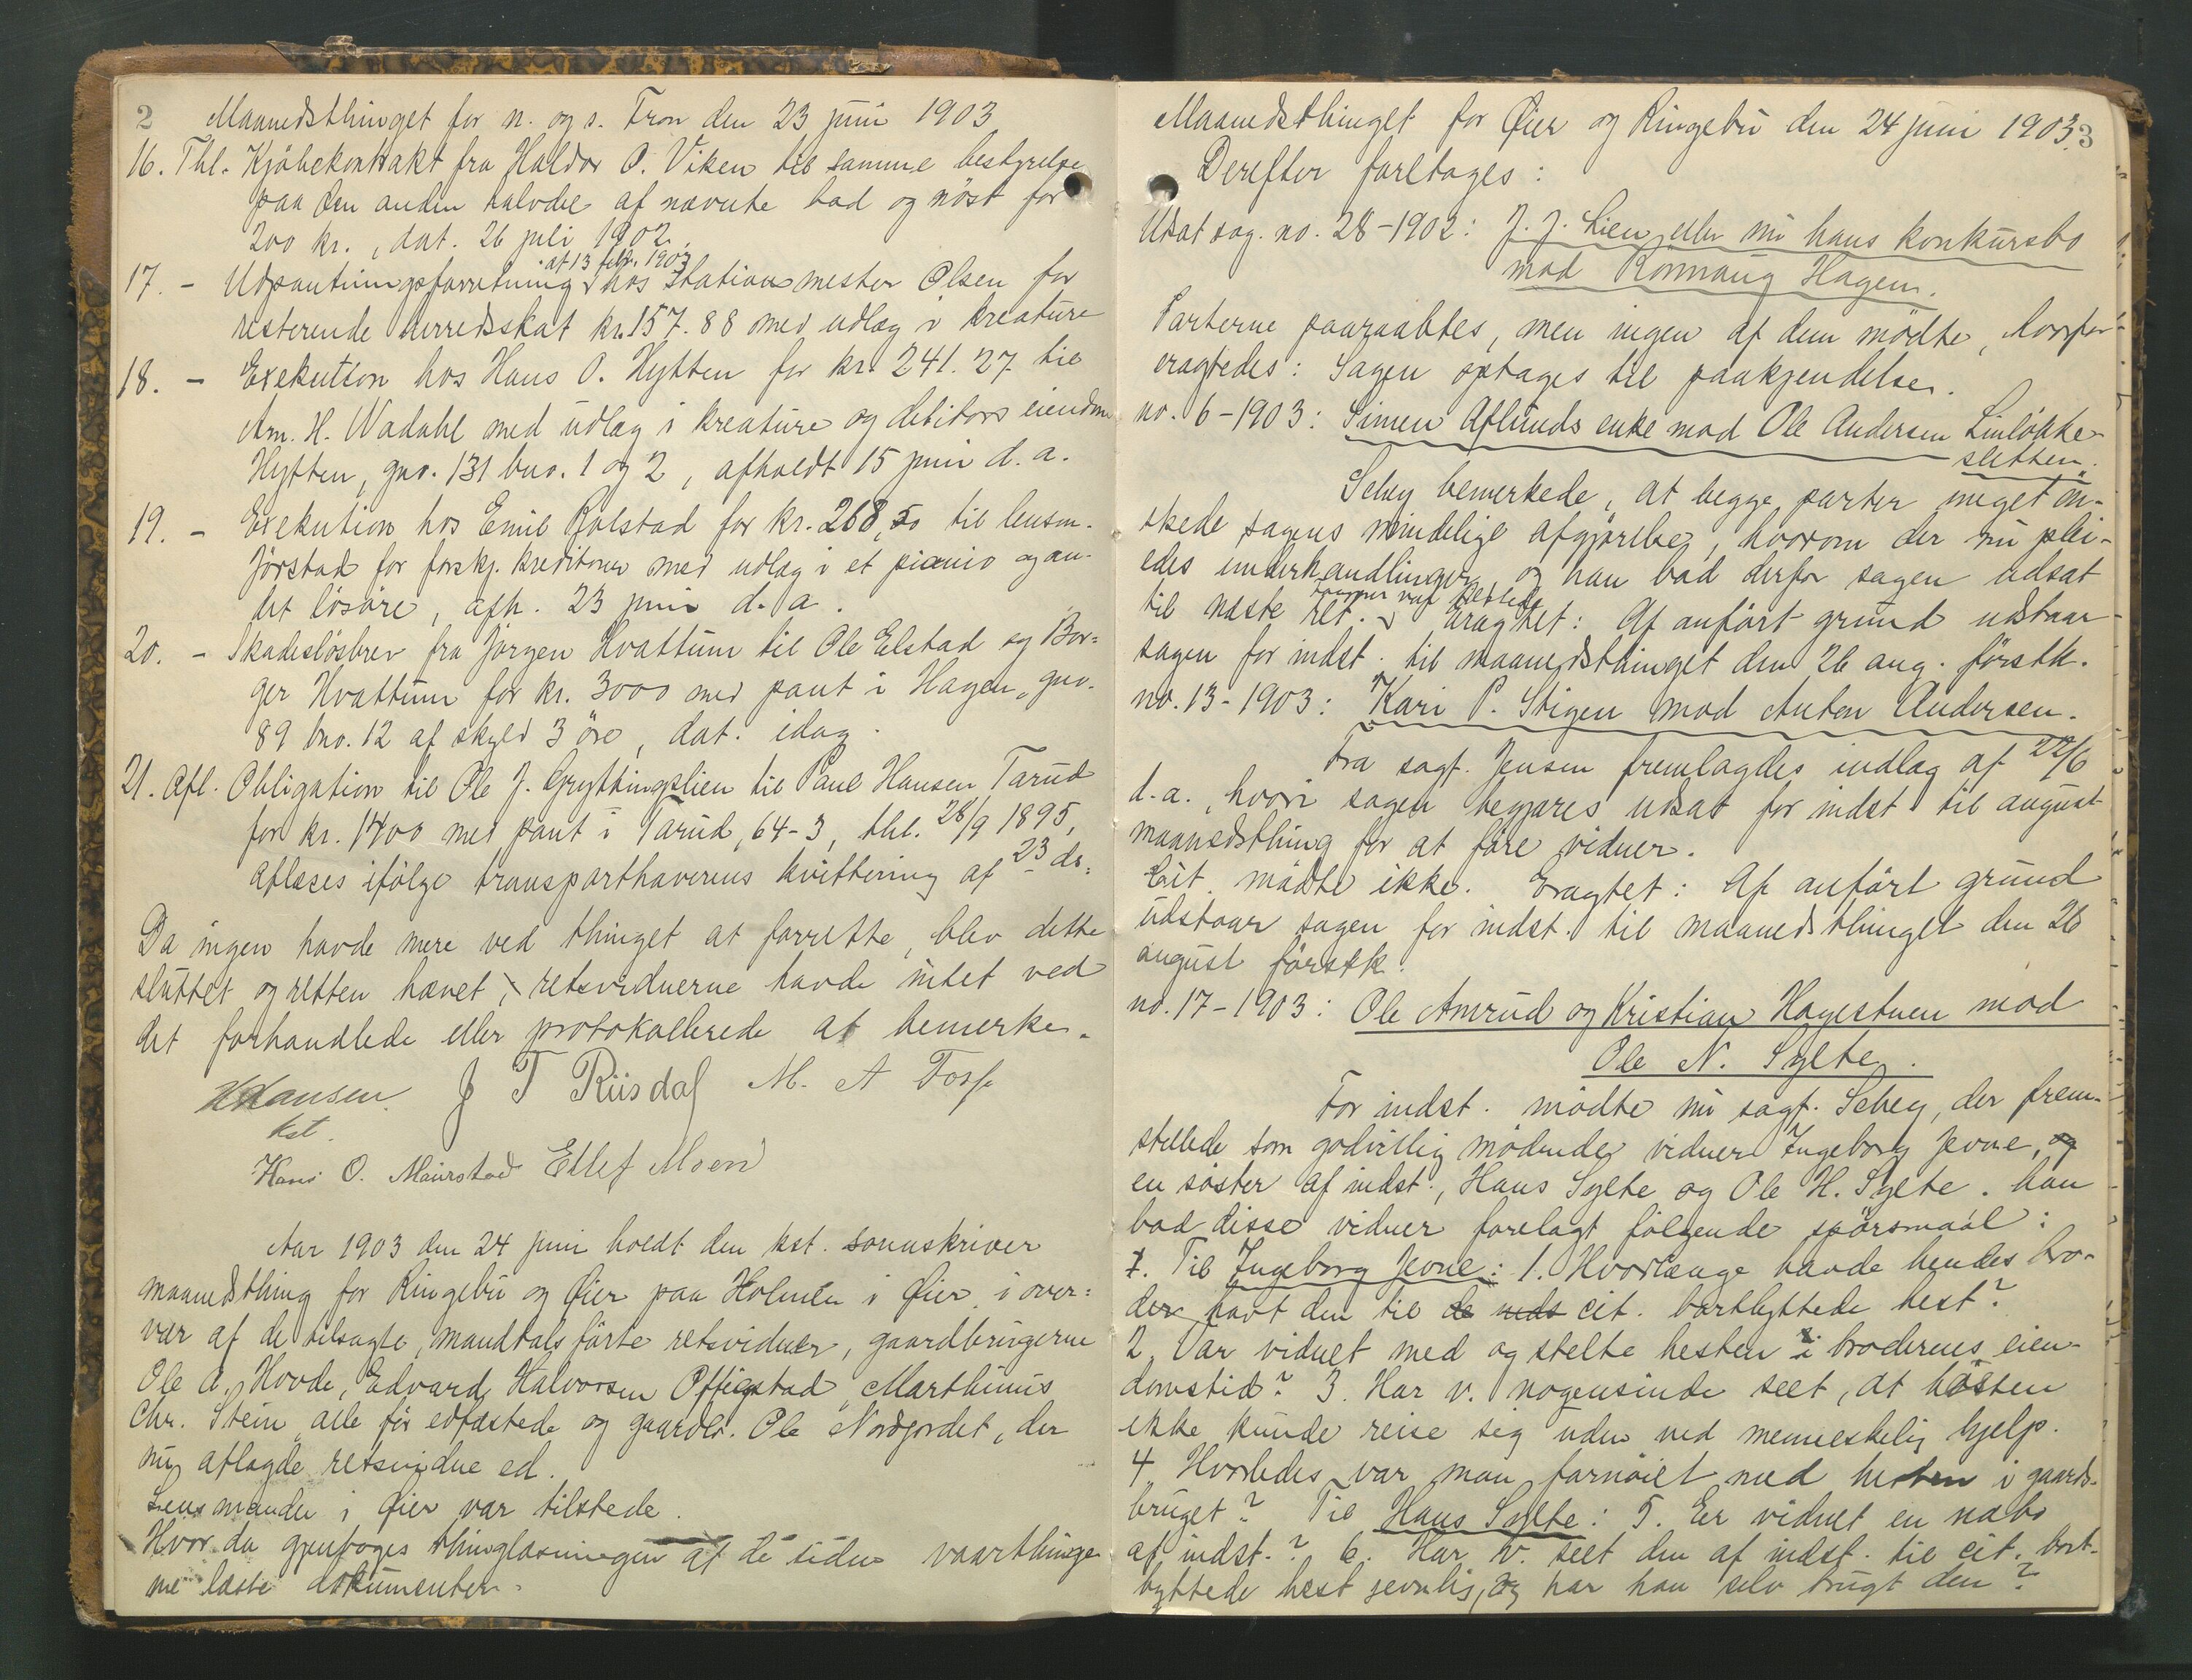 2 Maanedsthinget for n. og s. Fron den 23 juni 1903
16. Thl. Kjöbekontrakt fra Haldor O. Viken til samme bestyrelse
paa den anden halvdel af nævnte bod og nöst for
200 kr., dat. 26 juli 1902.
af 13 febr. 1903
17. - Udpantningsforretning hos stationsmester Olsen for
resterende herredsskat kr. 157.88 med udlæg i kreature
18. - Exekution hos Hans O. Hytten for kr. 241.27 til
Am. H. Wadahl med udlæg i kreature og debitors eiendom
Hytten, gno. 131 bno. 1 og 2, afholdt 15 juni d.a.
19. - Exekution hos Emil Rolstad for kr. 268,50 til lensm.
Jörstad for forskj. kreditorer med udlæg i et pianio og an-
det lösöre, afh. 23 juni d.a.
20. - Skadeslösbrev fra Jörgen Hvattum til Ole Elstad og Bor-
ger Hvattum for kr. 3000 med pant i Hagen, gno.
89 bno. 12 af skyld 3 öre, dat. idag.
21. Afl. Obligation til Ole J. Grythingslien til Paul Hansen Tarud
for kr. 1400 med pant i Tarud, 64-3, thl. 28/9 1895,
aflæses ifölge transporthaverens kvittering af 23 ds.
Da ingen havde mere ved thinget at forrette, blev dette
sluttet og retten hævet, retsvidnerne havde intet ved
det forhandlede eller protokollerede at bemerke.
Hansen J T Riisdal M. A Foss
kst.
Hans O. Maurstad Ellef Moen
Aar 1903 den 24 juni holdt den kst. sorenskriver
maanedsthing for Ringebu og Öier paa Holmen i Öier i over-
vær af de tilsagte, mandtalsförte retsvidner, gaardbrugerne
Ole A. Hovde, Edvard Halvorsen Offigstad, Marthinus
Chr. Stein, alle för edfæstede og gaardbr. Ole Nordjordet, der
nu aflagde retsvidne ed.
Lensmanden i Öier var tilstede.
Hvor da gjentoges thinglæsningen af de siden vaarthinge-
ne læste dokumenter.
Maanedsthinget for Öier og Ringebu den 24 juni 1903. 3
Derefter foretages:
Udsat sag. no. 28-1902: J. J. Lien eller nu hans konkursbo
mod Rönnaug Hagen.
Parterne paaraabtes, men ingen af dem mödte, hvorfor
eragtedes: Sagen optages til paakjendelse.
no. 6-1903: Simen Aflunds enke mod Ole Andersen Linlökke-
sletten.
Schey bemerkede, at begge parter meget ön-
skede sagens mindelige afgjörelse, hvorom der nu plei-
edes underhandlinger, og han bad derfor sagen udsat
til næste ret. Eragtet: Af anfört grund udstaar
sagen for indst. til maanedsthinget den 26 aug. förstk.
no. 13-1903: Kari P. Stigen mod Anton Andersen.
Fra sagf. Jensen fremlagdes indlæg af 22/6
d.a., hvori sagen begjæres udsat for indst. til august
maanedsthing for at före vidner.
Cit. mödte ikke. Eragtet: Af anfört grund
udstaar sagen for indst. til maanedsthinget den 26
august förstk.
no. 17-1903: Ole Amrud og Kristian Hagestuen mod
Ole N. Sylte.
For indst. mödte nu sagf. Schey, der frem-
stillede som godvillig mödende vidner Ingeborg Jevne, og
en söster af indst., Hans Sylte og Ole H. Sylte. han
bad disse vidner forelagt fölgende spörsmaal:
1. Til Ingeborg Jevne: 1. Hvorlænge havde hendes bro-
der havt den til de inds cit. bortbyttede hest?
2. Var vidnet med og stelte hesten i broderens eien-
domstid? 3. Har v. nogensinde seet, at hesten
ikke kunde reise sig uden ved menneskelig hjelp.
4. Hvorledes var man fornöiet med hesten i gaards-
bruget? Til Hans Sylte: 5. Er vidnet en nabo
af indst.? 6. Har v. seet den af indst. til cit. bort-
byttede hest jevnlig, og har han selv brugt den?